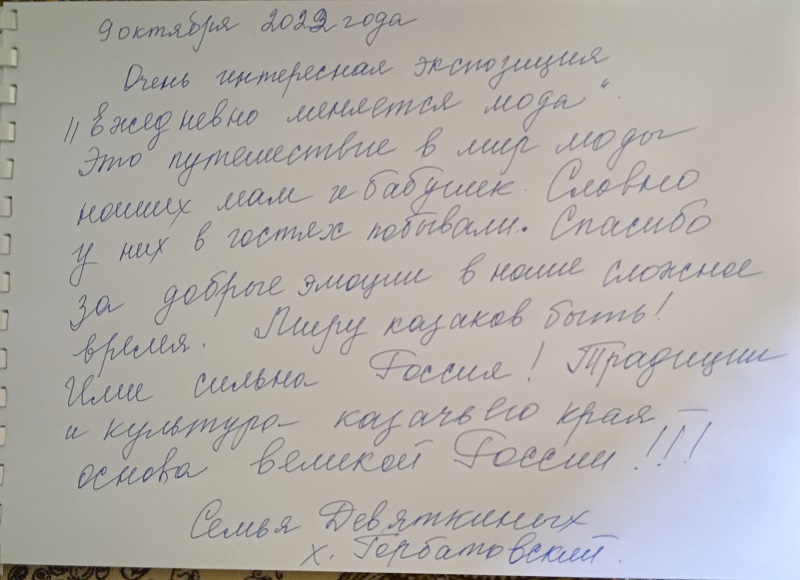 9 октября 2022 года
Очень интересная экспозиция
"Ежедневно меняется мода".
Это путешествие в мир моды
наших мам и бабушек. Словно
у них в гостях побывали. Спасибо
за добрые эмоции в наше сложное
время. Миру казаков быть!
Ими сильна Россия! Традиции
и культура казачьего края –
основа великой России!!!
Семья Девяткиных
х. Горбатовский.